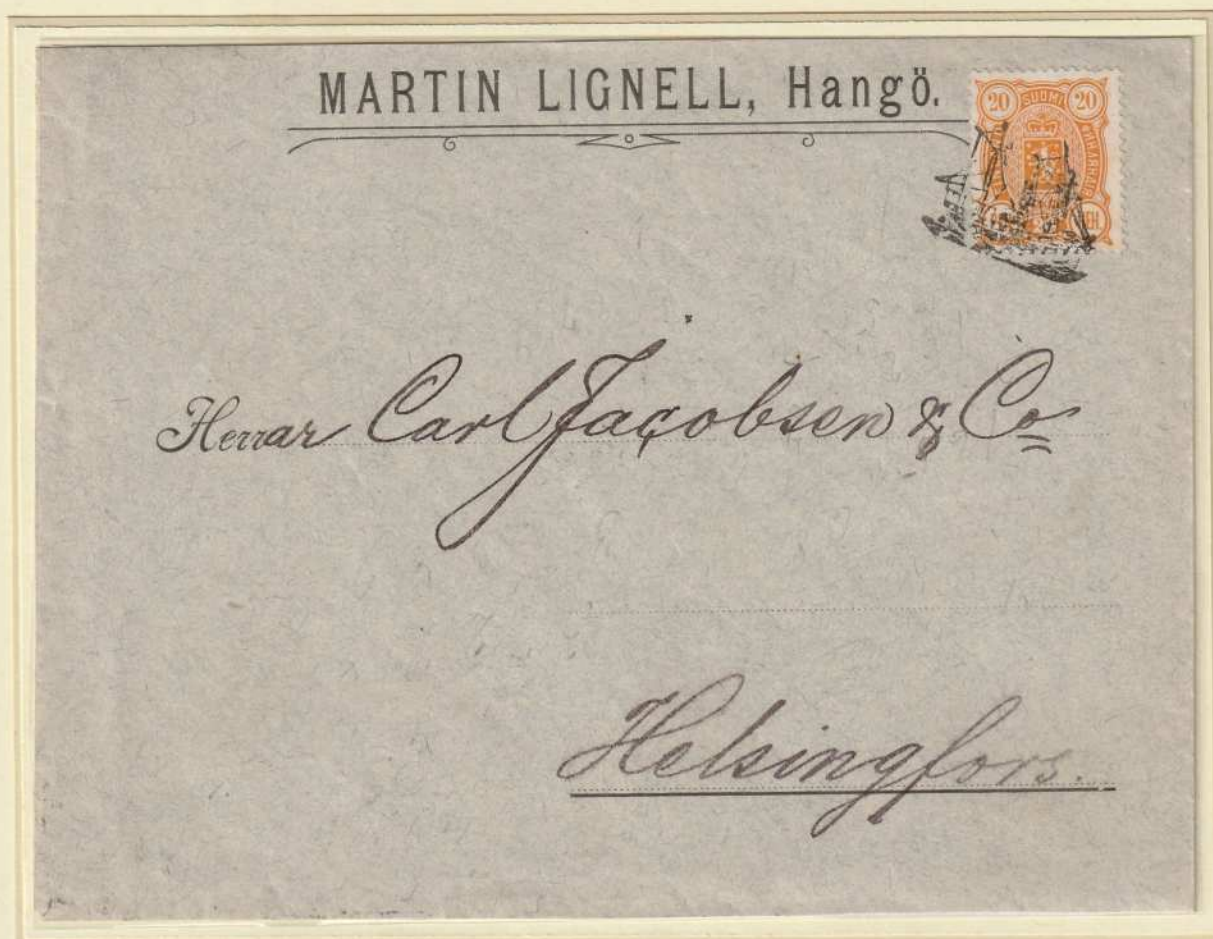 MARTIN LIGNELL, Hangö.
20 SUOMI 20
Herrar Carl Jacobsen & Co
Helsingfors.